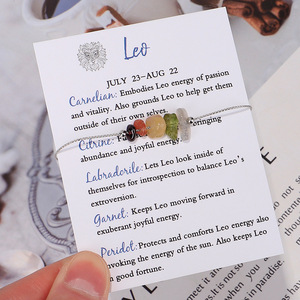 Leo
JULY 23-AUG 22
Carnelian: Embodies Leo energy of passion
and vitality. Also grounds Leo to help get them
outside of their own selves.
Citrine: bringing
abundance and joyful energy.
Labradorite: Lets Leo look inside of
themselves for introspection to balance Leo's
extroversion.
Garnet: Keeps Leo moving forward in
exuberant joyful energy.
Peridot: Protects and comforts Leo energy also
invoking the energy of the sun. Also keeps Leo
in good fortune.